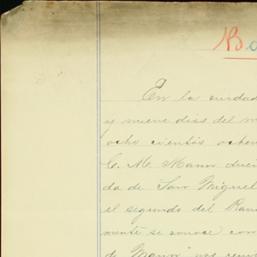 En la ciudad
y nueve dias del m
ocho cientos ochen
C. M. Mann due
da de San Miguel
el segundo del Ran
mente se conoce con
de Mann"